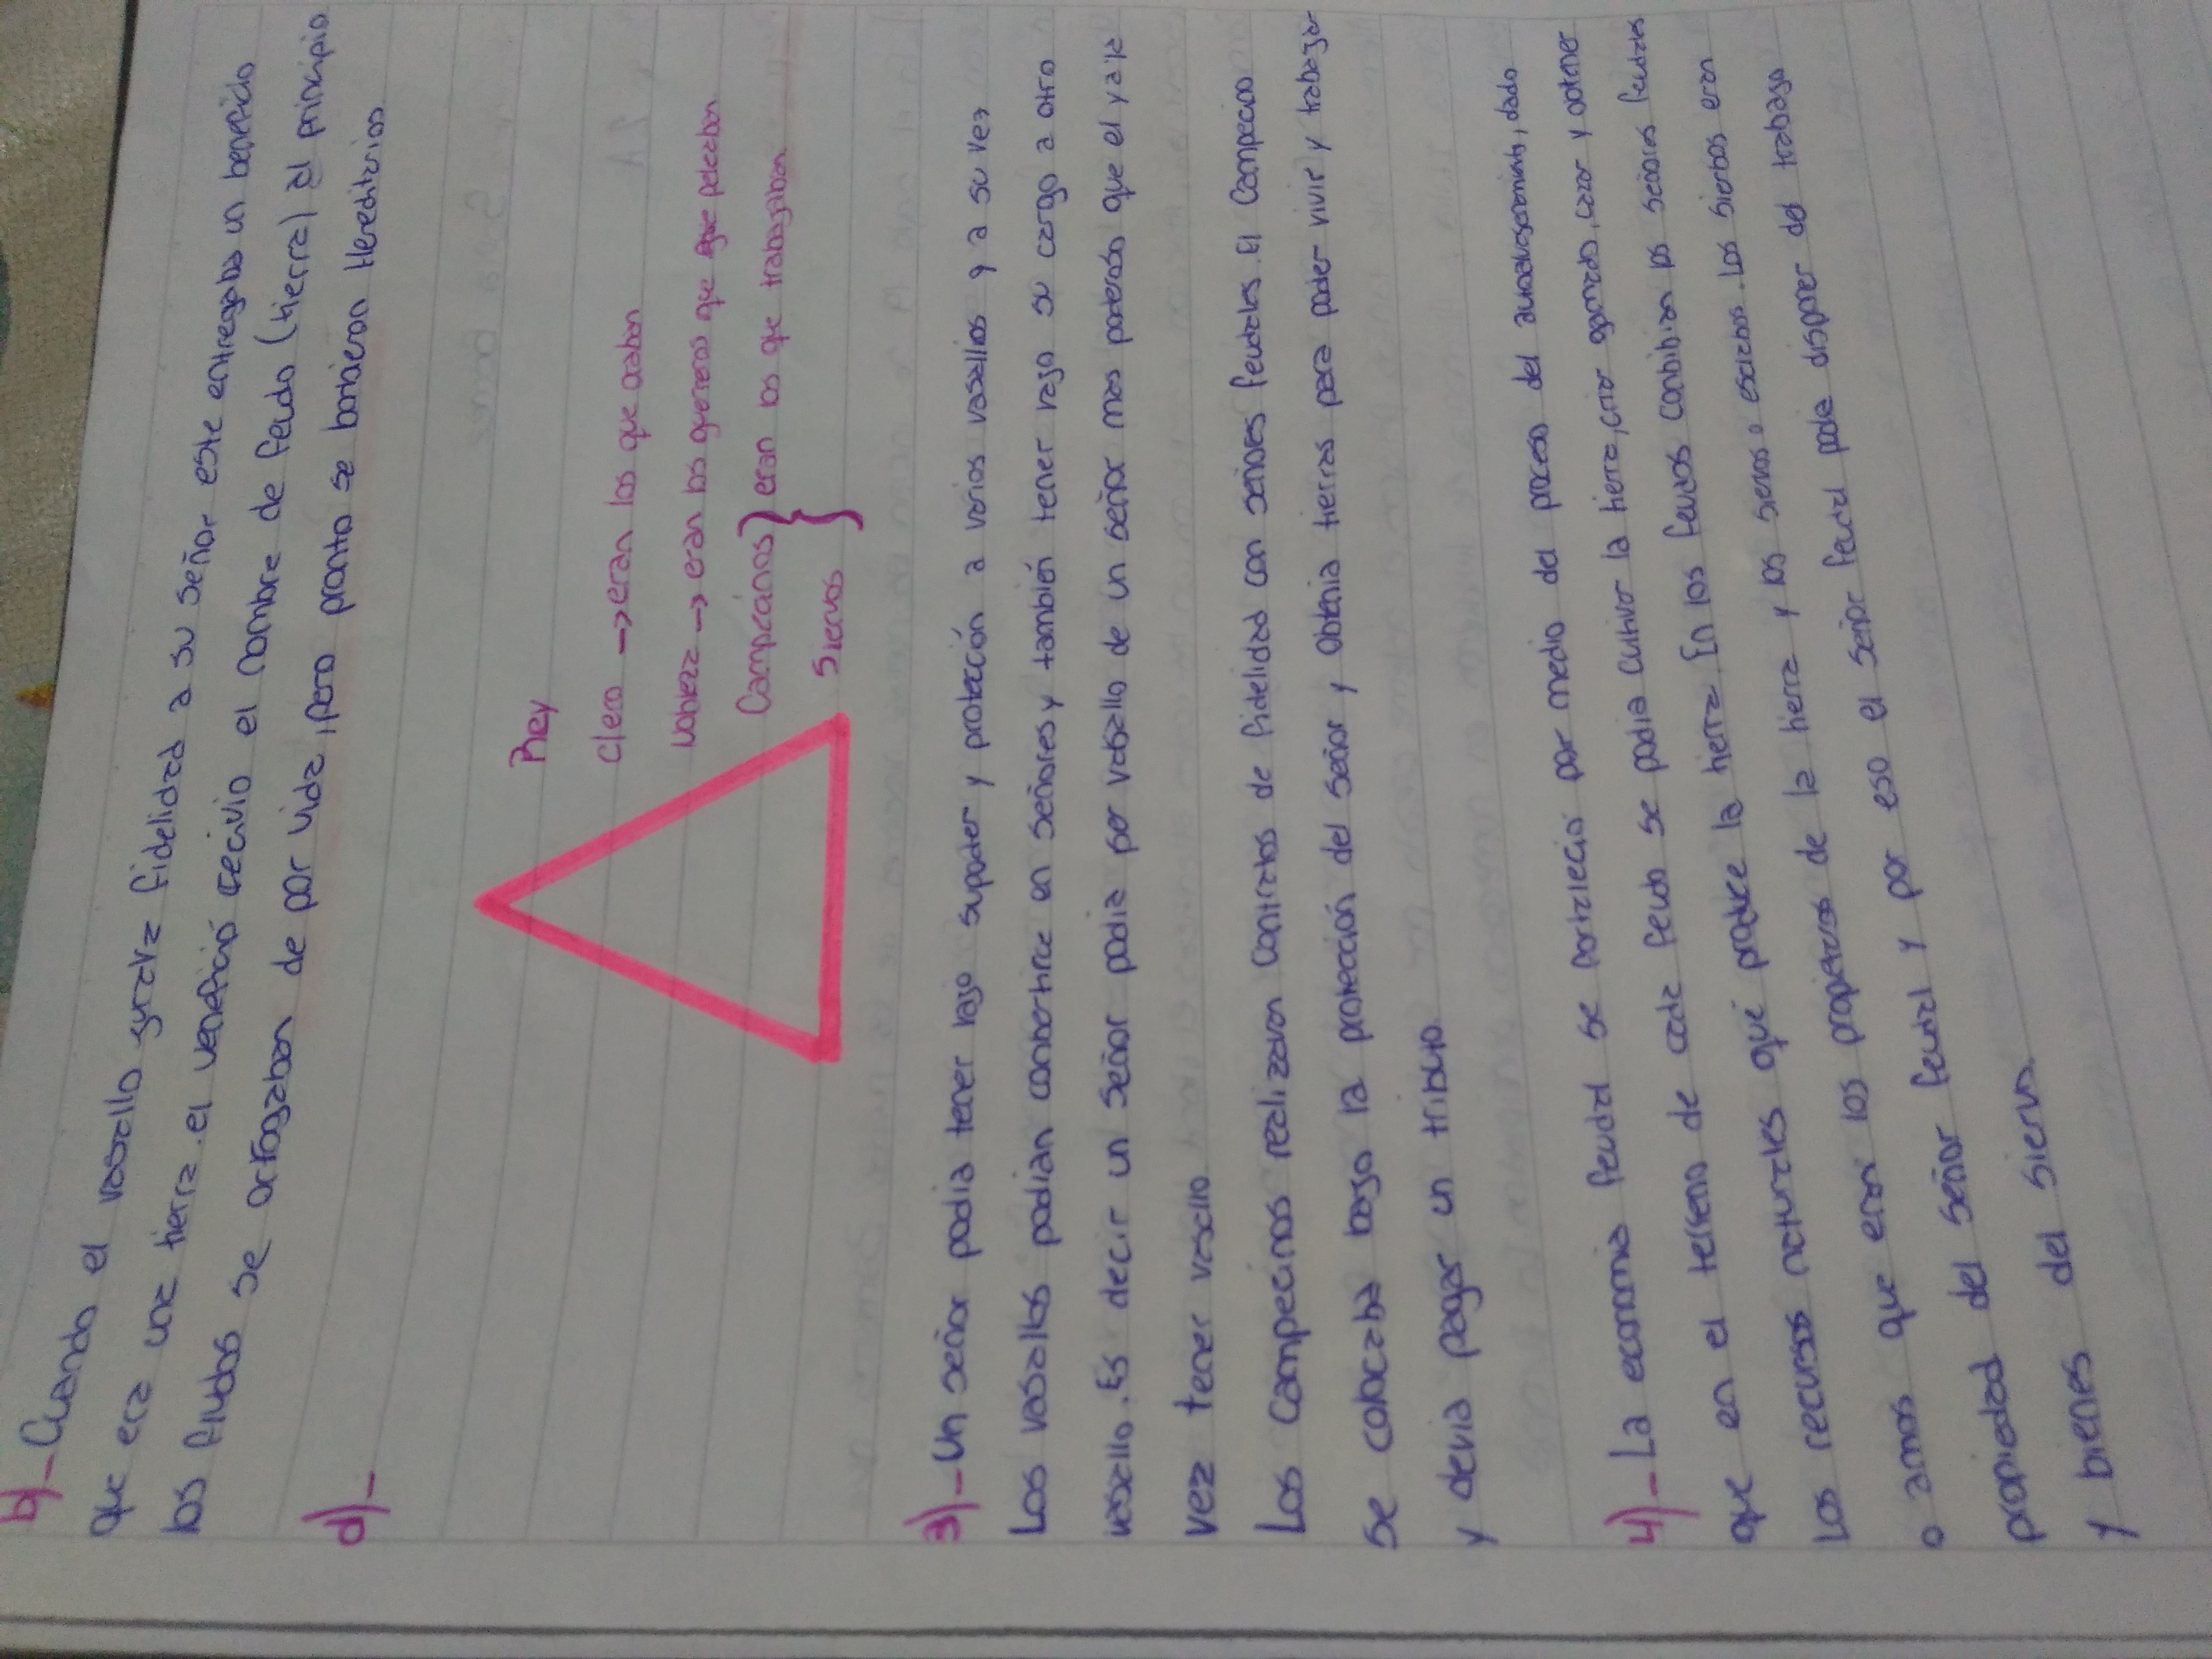 b)_ Cuando el vasallo jurava fidelidad a su señor este entregaba un beneficio
que era una tierra. el venefició recivio el nombre de feudo (tierra) al principio
los fiudos se octrogaban de por vida, pero pronto se bonbieron Hereditarios
d)_
Rey
Clero → eran los que oraban
Nobleza → eran los guerreros que peleaban
Campecinos } eran los que trabajaban
Siervos }
3)_ Un señor podia tener vajo supoder y protección a varios vasallos y a su vez
Los vasallos podian conbertirce en señores y también tener vajo su cargo a otro
vasallo. Es decir un señor podia ser vasallo de un señor mas poderoso que el y a la
vez tener vasallo
Los Campecinos realizavan contratos de fidelidad con señores feudales. El Campecino
se colocaba bajo la protección del señor y obtenia tierras para poder vivir y trabajar
y devia pagar un tributo
4)_ La economia feudal se fortalecio por medio del proceso del autoabastecimiento, dado
que en el terreno de cada feudo se podia cultivar la tierra, criar ganado, cazar y obtener
Los recursos naturales qué produce la tierra. En los feudos conbibian los señores feudales
o amos que eran los propietarios de la tierra y los siervos o esclabos. Los sierbos eran
propiedad del señor feudal y por eso el señor feudal podia disponer del trabajo
y bienes del siervo